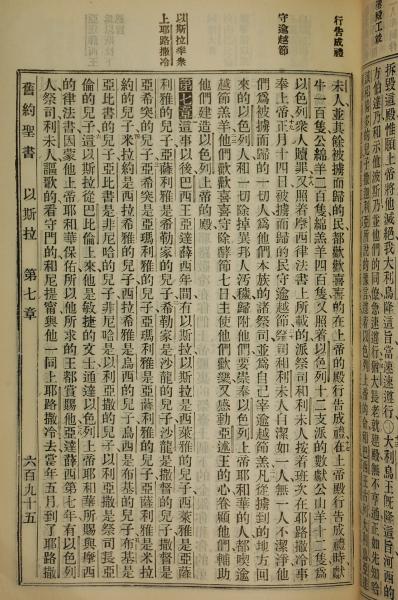 拆毀這殿惟願上帝將他滅絕我大利烏降這旨當速速遵行〇大利烏王既降這旨河西的
方伯達乃和示他波斯乃並他們的同僚急速遵行猶大長老就建殿無不亨通正如先知哈
行告成禮
守逾越節
以斯拉率衆
上耶路撒冷
未人並其餘被擄而歸的民都歡歡喜喜的在上帝的殿行告成禮在上帝殿行告成禮時獻
牛一百隻公綿羊二百隻綿羔羊四百隻又照着以色列十二支派的數獻公山羊十二隻爲
以色列衆人贖罪又照着摩西律法書上所載的派祭司和利未人按着班次在耶路撒冷事
奉上帝正月十四日被擄而歸的民守逾越節祭司和利未人自潔如一人無一人不潔淨他
們爲被擄而歸的一切人爲他們本族的諸祭司並爲自己宰逾越節羔凡從擄到的地方回
來的以色列人和一切除掉異邦人汚穢歸附他們要崇奉以色列上帝耶和華的人都喫逾
越節羔羊他們歡歡喜喜守除酵節七日主使他們歡樂又感動亞述王的心眷顧他們輔助
他們建造以色列上帝的殿
第七章 這事以後巴西王亞達薛西年間有以斯拉以斯拉是西萊雅的兒子西萊雅是亞薩
利雅的兒子亞薩利雅是希勒家的兒子希勒家是沙龍的兒子沙龍是撒督的兒子撒督是
亞希突的兒子亞希突是亞瑪利雅的兒子亞瑪利雅是亞薩利雅的兒子亞薩利雅是米拉
約的兒子米拉約是西拉希雅的兒子西拉希雅是烏西的兒子烏西是布基的兒子布基是
亞比書的兒子亞比書是非尼哈的兒子非尼哈是以利亞撒的兒子以利亞撒是祭司長亞
倫的兒子這以斯拉從巴比倫上來他是敏捷的文士通達以色列上帝耶和華所賜與摩西
的律法書因蒙他上帝耶和華保佑所以他所求的王都賞賜他亞達薛西第七年有以色列
人祭司利未人謳歌的看守門的和尼提甯與他一同上耶路撒冷去當年五月到了耶路撒
舊約聖書 以斯拉 第七章 六百九十五